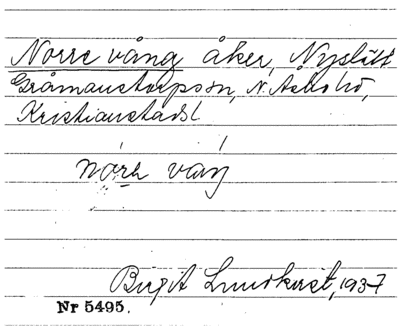 Norre vång åker, Nyslätt
Gråmanstorpssn, N. Åsbo hd,
Kristianstads l
nórə váŋ
Birgit Lundkvist, 1937
Nr 5495.